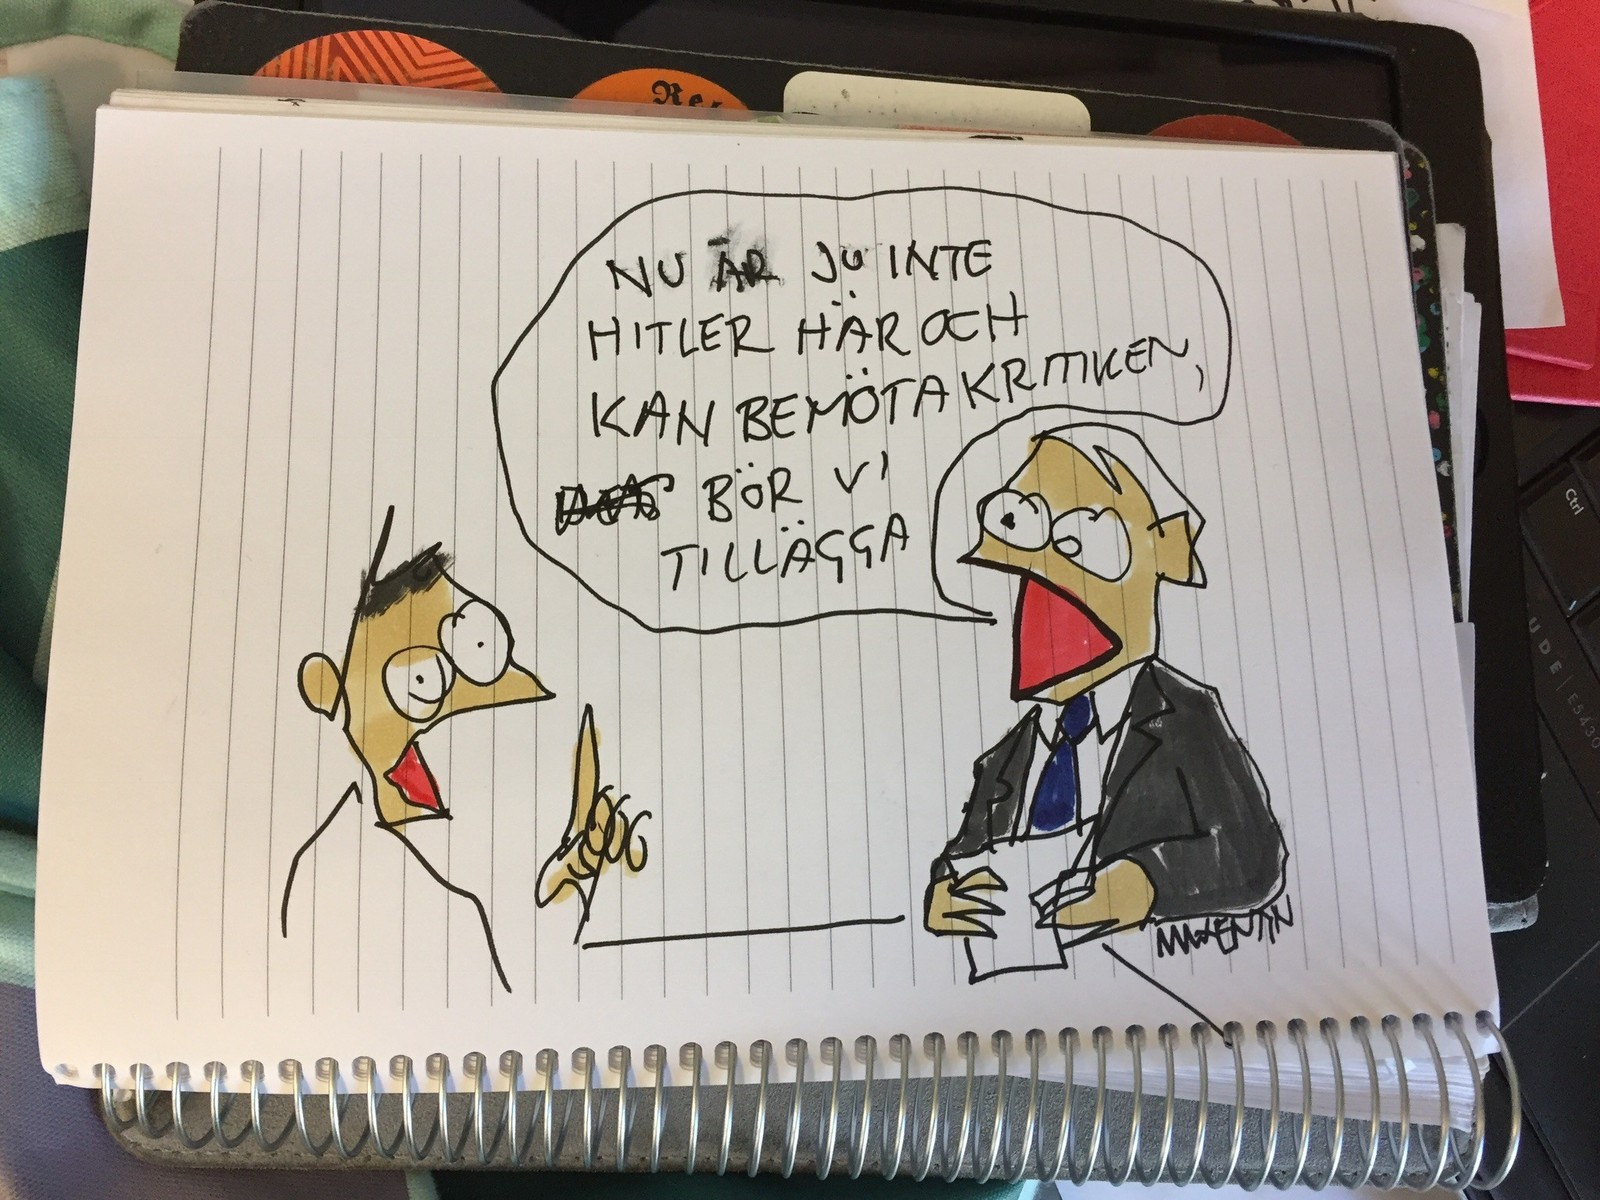 NU ÄR JU INTE
HITLER HÄR OCH
KAN BEMÖTA KRITIKEN,
BÖR VI
TILLÄGGA
Ctrl
UDE | E5430